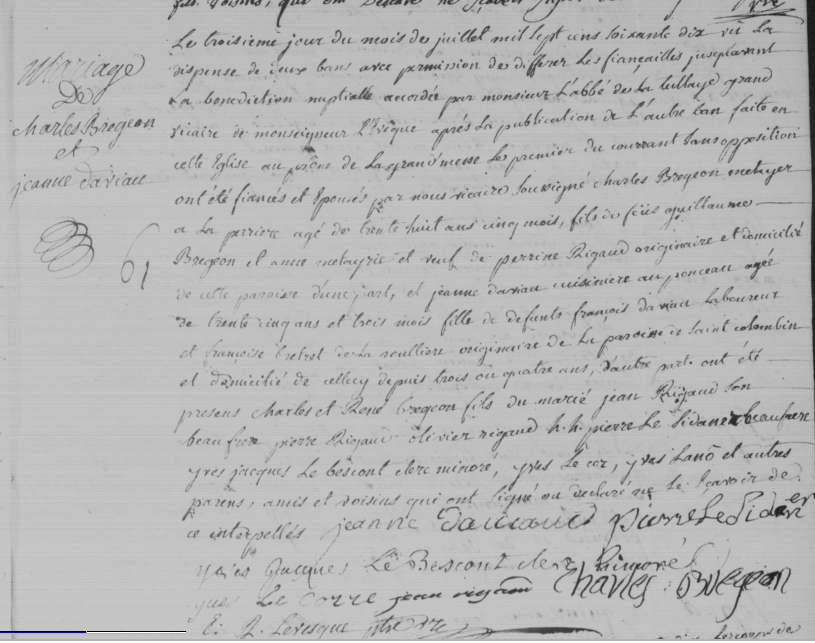 Mariage
De
charles Bregeon
et
jeanne daviau
61
Le troisieme jour du mois de juillet mil sept cens soixante dix vu La
dispense de deux bans avec permission de differer les fiançailles jusqu'avant
La benediction nuptialle accordée par monsieur L'abbé de La tullaye grand
vicaire de monseigneur L'Evêque aprés La publication de L'autre ban faite en
cette Eglise au prône de La grand'messe Le premier du courrant sans opposition
ont été fiancés et Epousés par nous vicaire Soussigné charles Bregeon metayer
a La perriere agé de trente huit ans cinq mois, fils de feus guillaume
Bregeon et anne metayrie et veuf de perrine Rigaud originaire et domicilié
de cette paroisse d'une part, et jeanne daviau cuisiniere au ponceau agée
de trente cinq ans et trois mois fille de defunts françois daviau Laboureur
et françoise de La originaire de La paroisse de Saint colombin
et domicilié de celle cy depuis trois ou quatre ans, d'autre part. ont été
presens charles et René bregeon fils du marié jean Rigaud son
beaufrere pierre Rigaud olivier rigaud h. h. pierre Le Sidaner beaufrere
yves jacques Le bescont clerc minoré, yves Le cor, yves Lano et autres
parens, amis et voisins qui ont signé ou declaré ne Le sçavoir de
ce interpellés jeanne daviaud pierre Le Sidaner
yves jacques Le Bescont clerc minoré
yves Le corre jean rigaud Charles Bregeon
R. Levesque ptre